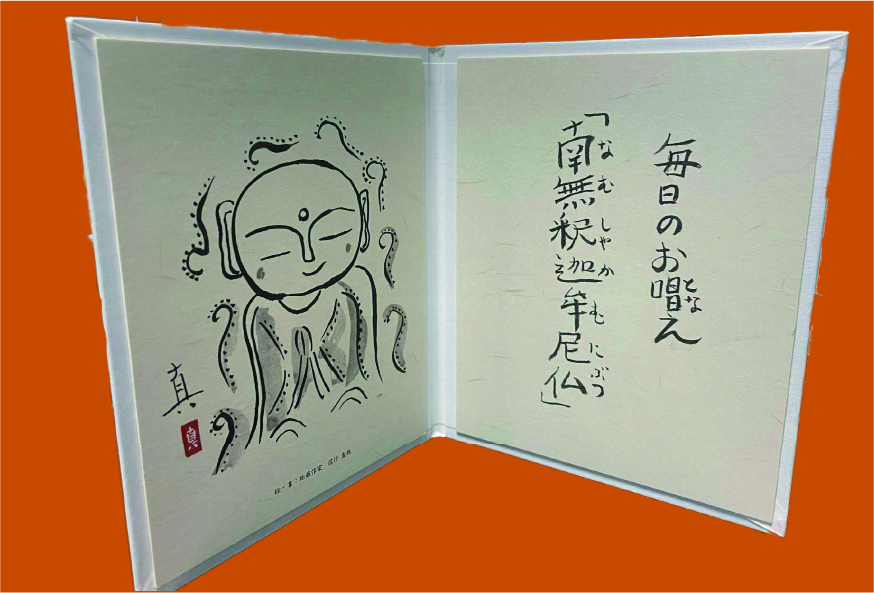 毎日のお唱え
となな
「南無釈迦牟尼仏」
なむしゃかむにぶつ
真
真
絵・書：地蔵作家